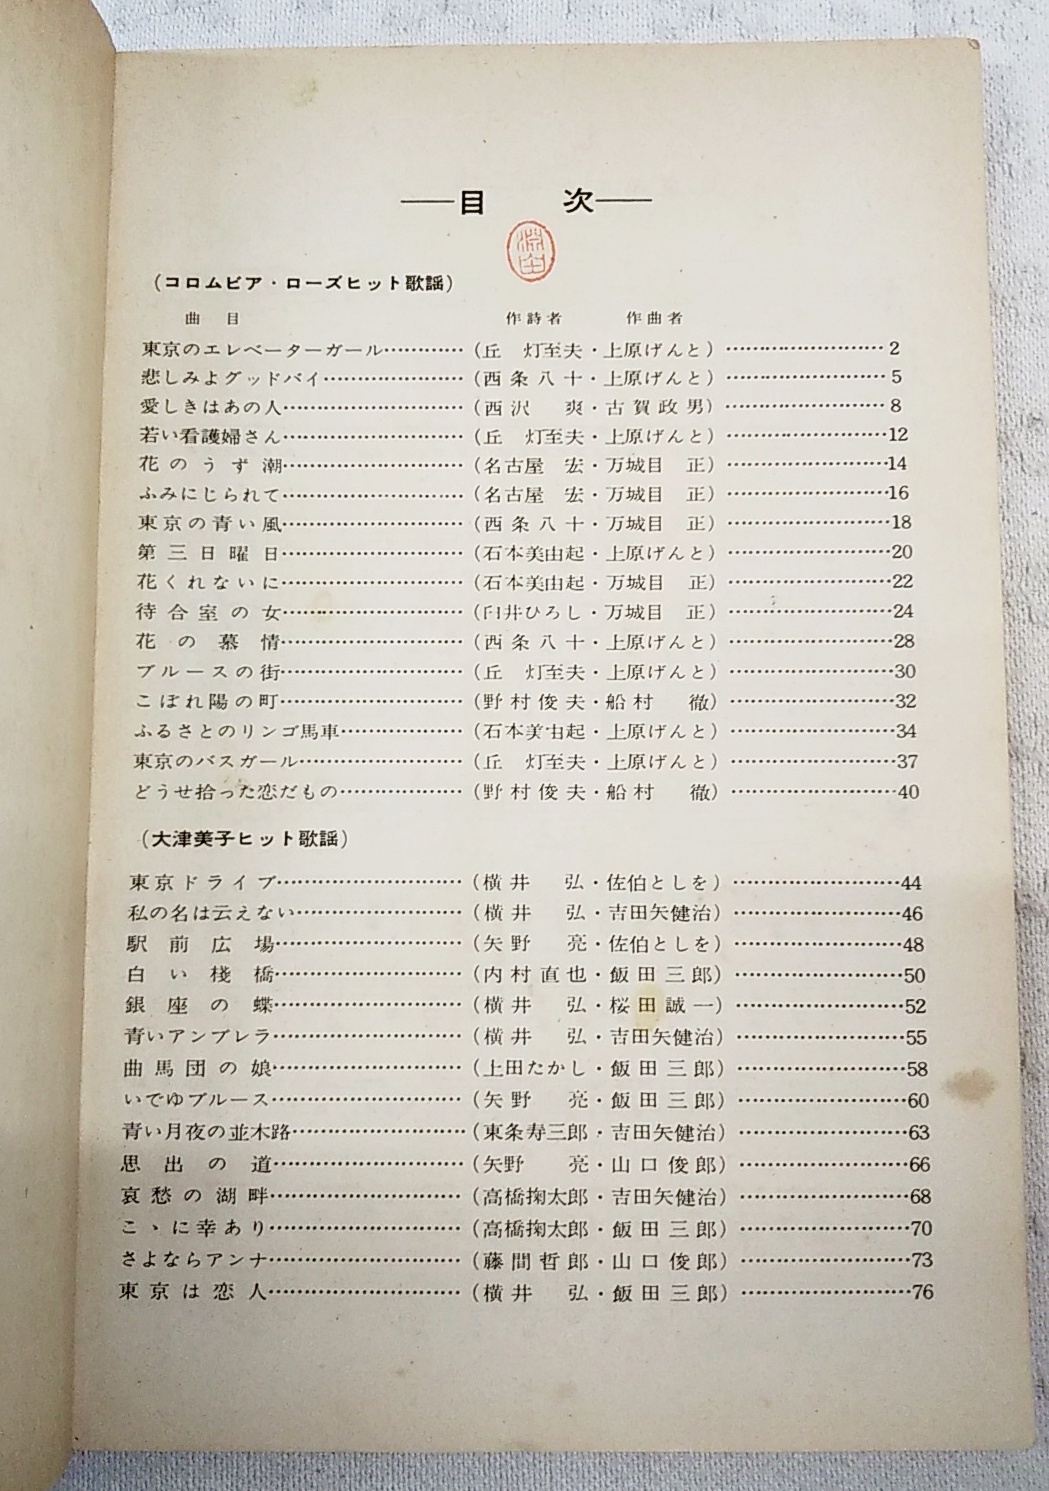 ──目　次──
(コロムビア・ローズヒット歌謡)
曲目 作詩者 作曲者
東京のエレベーターガール…………(丘 灯至夫・上原げんと)……………………2
悲しみよグッドバイ…………………(西条八十・上原げんと)……………………5
愛しきはあの人………………………(西沢 爽・古賀政男)……………………8
若い看護婦さん………………………(丘 灯至夫・上原げんと)……………………12
花のうず潮………………………(名古屋 宏・万城目 正)……………………14
ふみにじられて………………………(名古屋 宏・万城目 正)……………………16
東京の青い風………………………(西条八十・万城目 正)……………………18
第三日曜日………………………(石本美由起・上原げんと)……………………20
花くれないに………………………(石本美由起・万城目 正)……………………22
待合室の女………………………(臼井ひろし・万城目 正)……………………24
花の慕情………………………(西条八十・上原げんと)……………………28
ブルースの街………………………(丘 灯至夫・上原げんと)……………………30
こぼれ陽の町………………………(野村俊夫・船村 徹)……………………32
ふるさとのリンゴ馬車………………(石本美由起・上原げんと)……………………34
東京のバスガール……………………(丘 灯至夫・上原げんと)……………………37
どうせ拾った恋だもの………………(野村俊夫・船村 徹)……………………40
(大津美子ヒット歌謡)
東京ドライブ………………………(横井 弘・佐伯としを)……………………44
私の名は云えない……………………(横井 弘・吉田矢健治)……………………46
駅前広場………………………(矢野 亮・佐伯としを)……………………48
白い棧橋………………………(内村直也・飯田三郎)……………………50
銀座の蝶………………………(横井 弘・桜田誠一)……………………52
青いアンブレラ………………………(横井 弘・吉田矢健治)……………………55
曲馬団の娘………………………(上田たかし・飯田三郎)……………………58
いでゆブルース………………………(矢野 亮・飯田三郎)……………………60
青い月夜の並木路……………………(東条寿三郎・吉田矢健治)……………………63
思出の道………………………(矢野 亮・山口俊郎)……………………66
哀愁の湖畔………………………(高橋掬太郎・吉田矢健治)……………………68
こゝに幸あり………………………(高橋掬太郎・飯田三郎)……………………70
さよならアンナ………………………(藤間哲郎・山口俊郎)……………………73
東京は恋人………………………(横井 弘・飯田三郎)……………………76